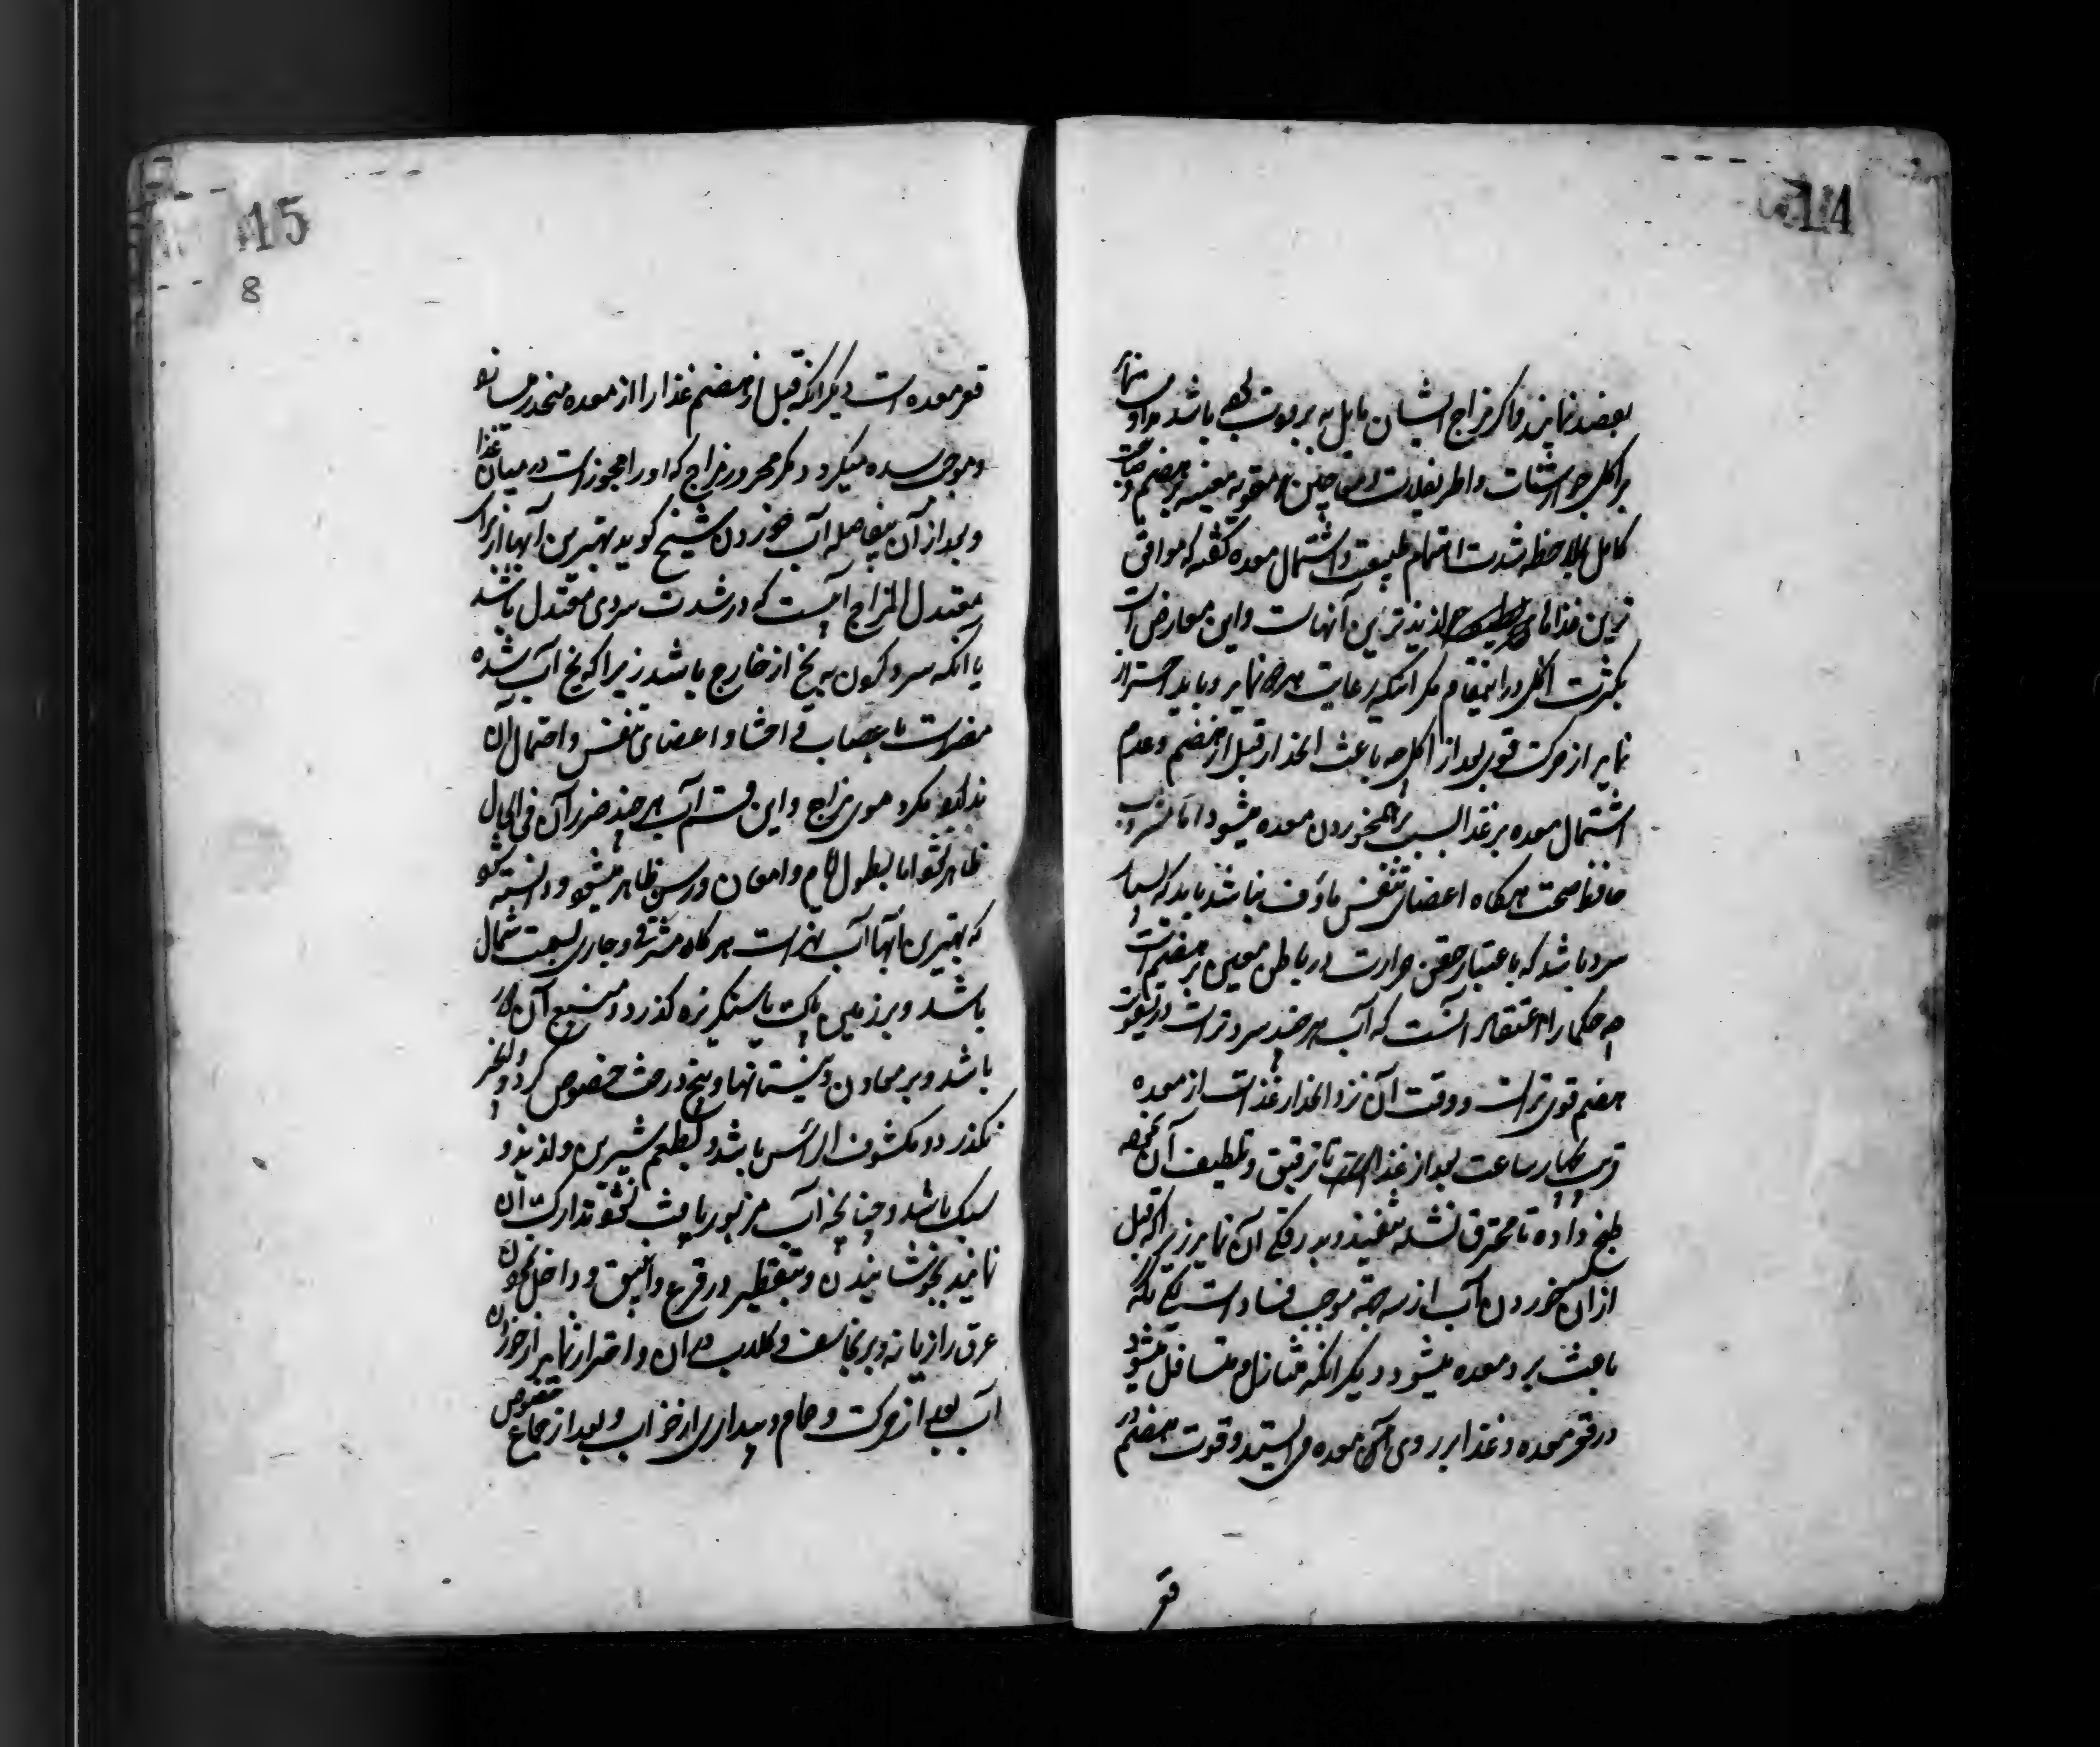 14
بعضد نمایند و اگر مزاج ایشان مایل به برودت باشد مداومت نمایند
بر اکل جوارشات و اطریفلات و معاجین مقویه معینه بر هضم و صاحب
کامل بملاحظه شدت اهتمام طبیعت و اشتمال معده گفته که موافق
ترین غذاهای لذیذترین آنهاست و این معارض است
بکثرت اکل در اینمقام مگر آنکه رعایت نماید و باید احتراز
نماید از حرکت قوی بعد از اکل چه باعث انحدار قبل از هضم و عدم
اشتمال معده بر غذا بسبب برهمخوردن معده میشود اما مشروب
حافظ صحت هرگاه اعضای تنفس ماؤف نباشد باید که بسیار
سرد باشد که باعتبار حقن حرارت در باطن معین بر هضم است
چه حکما را اعتقاد آنست که آب هر چند سردتر است در تقویت
هضم قوی‌تر است و وقت آن نزد انحدار غذاست از معده
قریب بچهار ساعت بعد از غذا تا ترقیق و تلطیف آن نموده
طبخ داده تا محترق نشده تنفیذ و بدرقگی آن نماید زیرا که قبل
از آن خوردن آب از سه جهة موجب فساد است یکی آنکه
باعث برد معده میشود دیگر آنکه متنازل و متسافل میشود
در قعر معده و غذا بر روی آن معده می‌ایستد و قوت هضم در
قعر
15
8
قعر معده است دیگر آنکه قبل از هضم غذا را از معده منحدر میسازد
و موجب سده میگردد مگر محرور مزاج که او را مجوز است در میان غذا
و بعد از آن بیفاصله آب خوردن شیخ گوید بهترین آبها از برای
معتدل المزاج آبیست که در شدت سردی معتدل باشد
یا آنکه سرد کردن به یخ از خارج باشد زیرا که یخ آب شده
مضر است باعصاب و احشا و اعضای تنفس و احتمال آن
ندارد مگر دموی مزاج و این قسم آب هر چند ضرر آن فی الحال
ظاهر نشود اما بطول ایام و امعان در سن ظاهر میشود و دانسته شود
که بهترین آبها آب نهر است هرگاه مشرقی و جاری بسمت شمال
باشد و بر زمین پاک یا سنگریزه گذرد و منبع آن دور
باشد و بر معادن و نیستانها و بیخ درخت خصوص گردو و انجیر
نگذرد و مکشوف الرأس باشد و بطعم شیرین و لذیذ و
سبک باشد و چنانچه آب مزبور یافت نشود تدارک آن
نمایند بجوشانیدن و بتقطیر در قرع و انبیق و داخل نمودن
عرق رازیانه و برنجاسف و کلاب در آن و احتراز نماید از خوردن
آب بعد از حرکت و حمام و بیداری از خواب و بعد از جماع خصوص